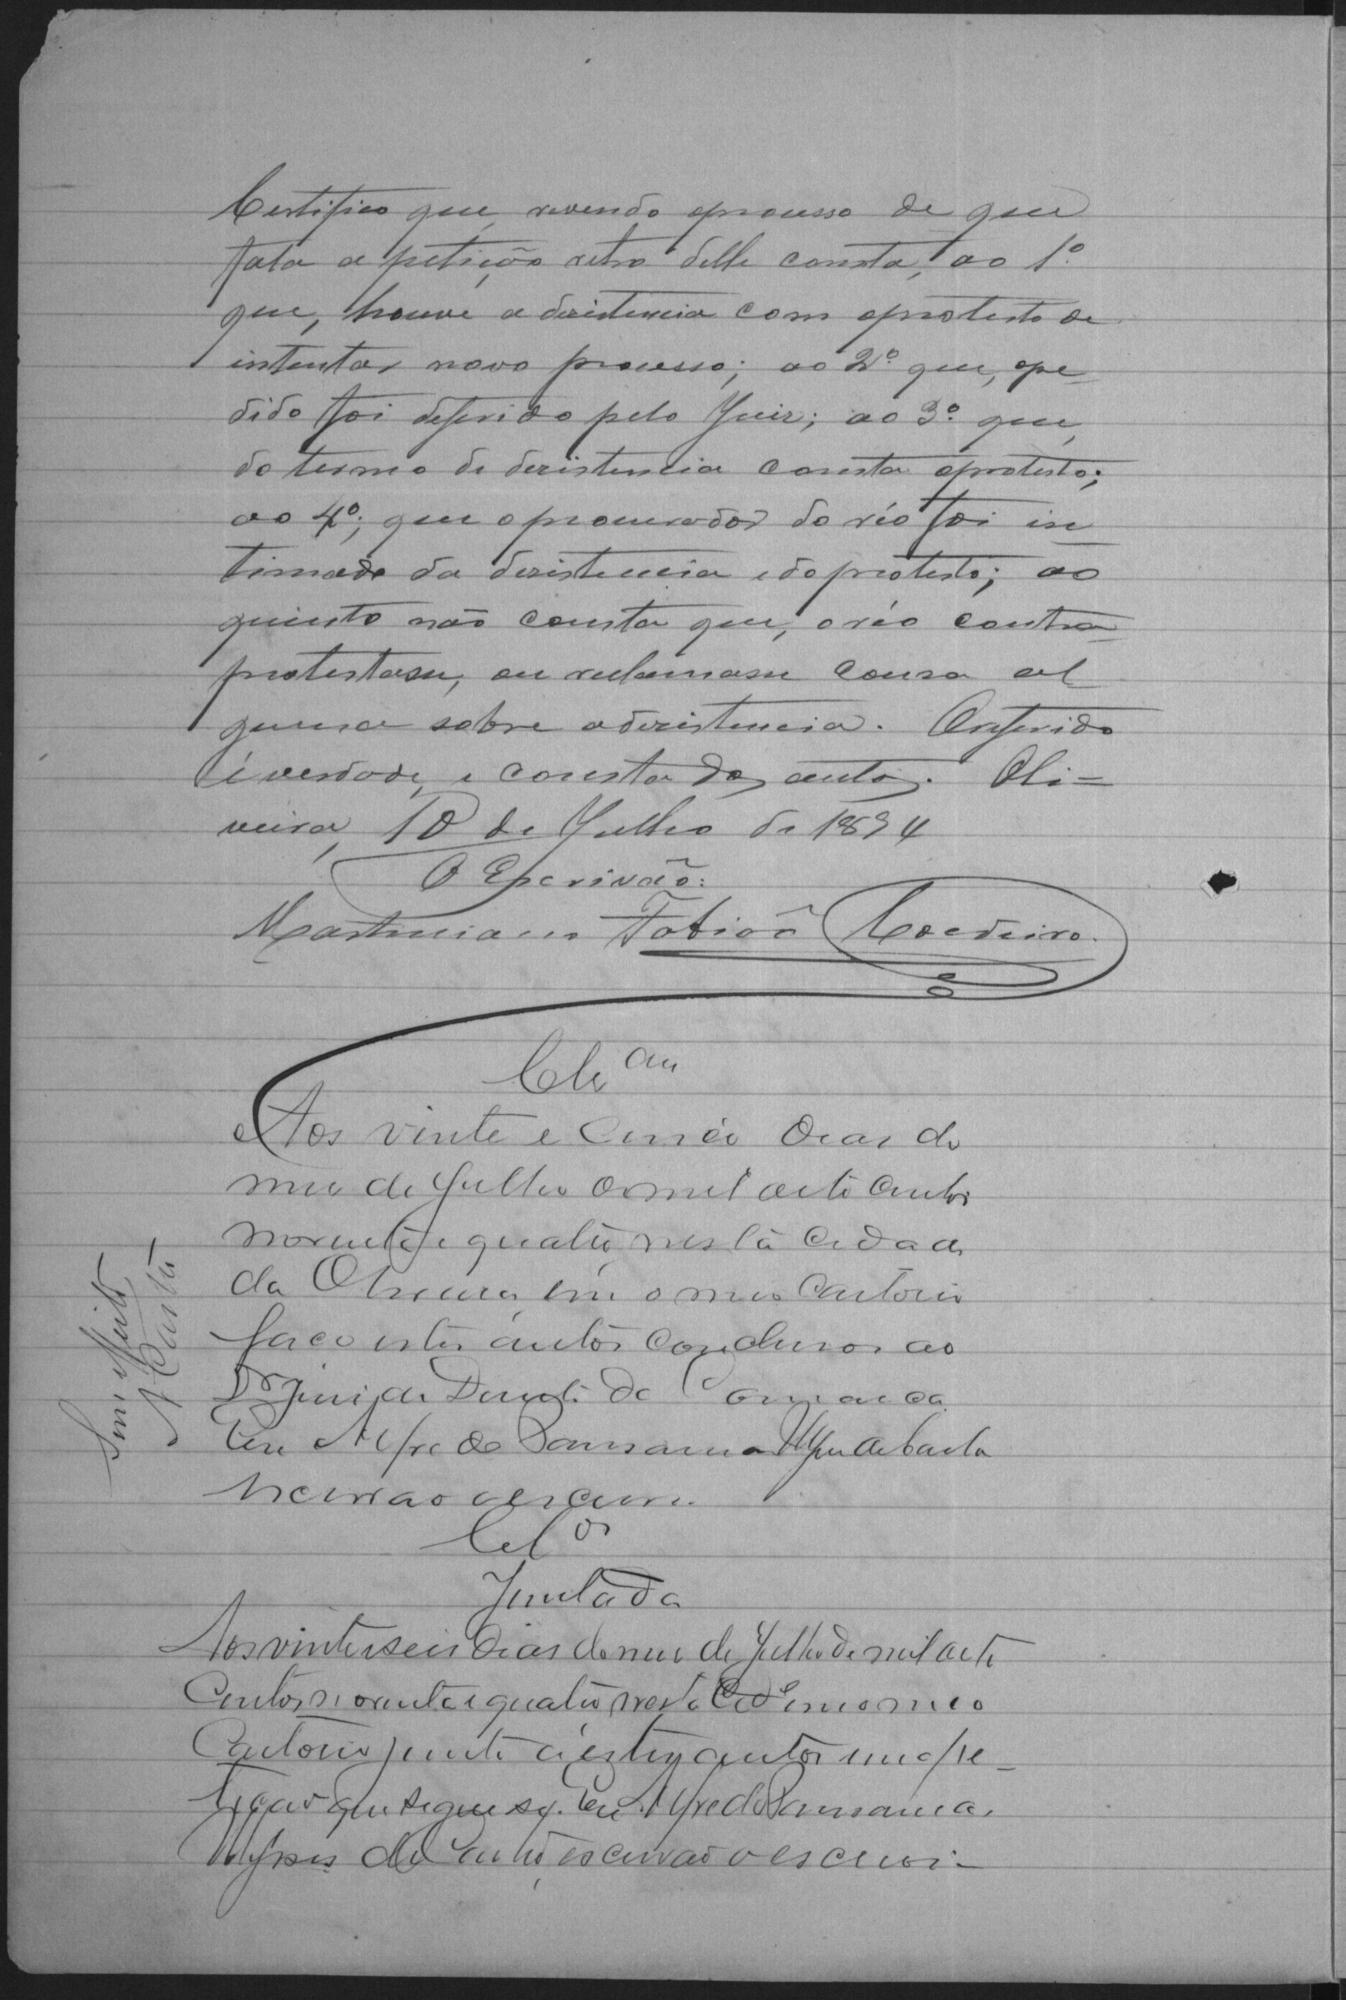 Certifico que, revendo oprocesso de que
fala a petição retro delle consta, ao 1º
que, houve a dezistencia com oprotesto de
intentar novo processo; ao 2º que, ope
dido foi deferido pelo Juiz; ao 3º que,
do termo de dezistencia consta oprotesto;
ao 4º; que oprocurador do réo foi in
timado da dezistencia e do protesto; ao
quinto não consta que, o réo contra
protestasse, ou reclamasse cousa al
guma sobre a dezistencia. Oreferido
é verdade, e consta dos autos. Oli=
veira, 10 de Julho de 1894
O Escrivão:
Martiniano Fabião Cordeiro.
Clsam
Aos vinte e cinco dias do
mez de Julho de mil oito centos
noventa e quatro, nesta cidade
da Oliveira, em o meu Cartorio
faço estes autos conclusos ao
Dr Juiz de Direito da Comarca
Eu Alfredo
escrivão o escrevi.
Clos
Sem effeito
A Costa
Juntada
Aos vinte e seis dias do mez de Julho de mil oito
centos noventa e quatro, nesta Cide em o meo
Cartorio junto á estes autos uma pe_
tição que segue se. Eu Alfredo
de escrivão o escrevi-